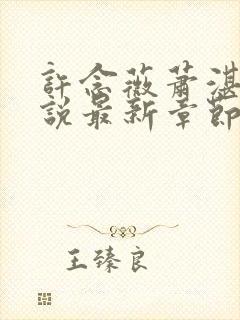 許念薇蕭湛
說最新章節
王臻良